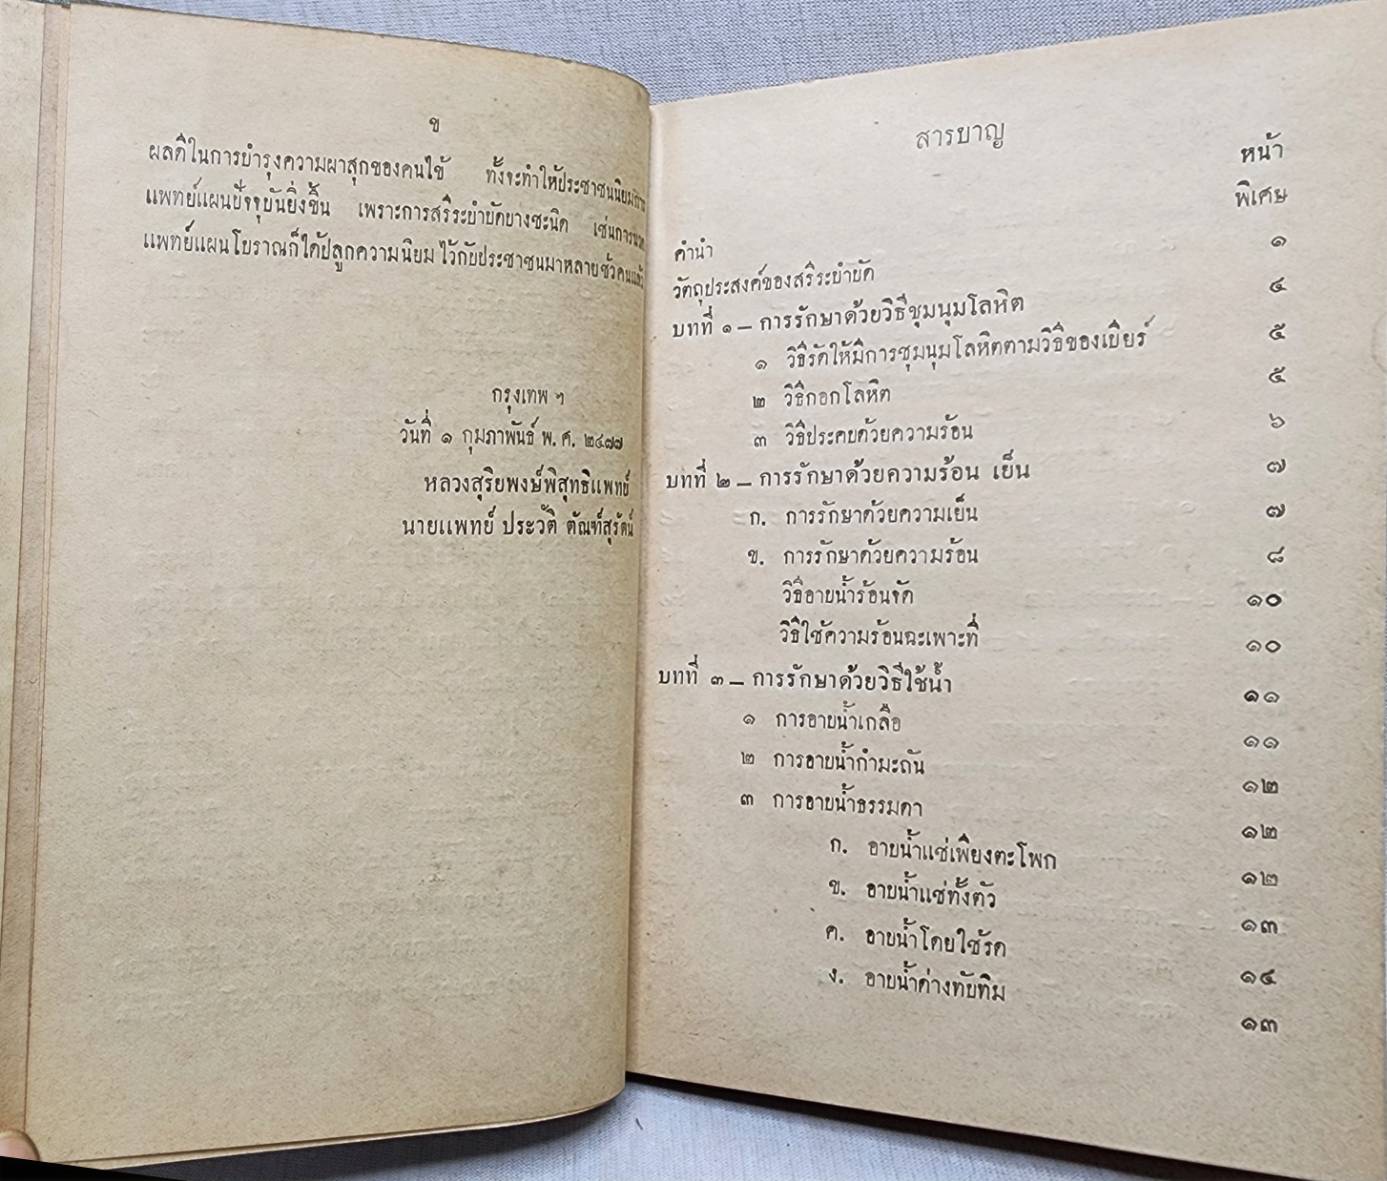 ข
ผลดีในการบำรุงความผาสุกของคนไข้ ทั้งจะทำให้ประชาชนนิยม
แพทย์แผนปัจจุบันยิ่งขึ้น เพราะการสรีระบำบัดบางชะนิด เช่นการนวด
แพทย์แผนโบราณก็ได้ปลูกความนิยมไว้กับประชาชนมาหลายชั่วคนแล้ว
กรุงเทพ ฯ
วันที่ ๑ กุมภาพันธ์ พ.ศ. ๒๔๗๗
หลวงสุริยพงษ์พิสุทธิแพทย์
นายแพทย์ ประวัติ ตัณฑ์สุรัตน์
สารบาญ
หน้า
คำนำ พิเศษ
วัตถุประสงค์ของสรีระบำบัด ๑
บทที่ ๑ — การรักษาด้วยวิธีชุมนุมโลหิต ๔
๑ วิธีรัดให้มีการชุมนุมโลหิตตามวิธีของเบียร์ ๕
๒ วิธีกอกโลหิต ๕
๓ วิธีประคบด้วยความร้อน ๖
บทที่ ๒ — การรักษาด้วยความร้อน เย็น ๗
ก. การรักษาด้วยความเย็น ๗
ข. การรักษาด้วยความร้อน ๘
วิธีอาบน้ำร้อนจัด ๑๐
วิธีใช้ความร้อนฉะเพาะที่ ๑๐
บทที่ ๓ — การรักษาด้วยวิธีใช้น้ำ ๑๑
๑ การอาบน้ำเกลือ ๑๑
๒ การอาบน้ำกำมะถัน ๑๒
๓ การอาบน้ำธรรมดา ๑๒
ก. อาบน้ำแช่เพียงตะโพก ๑๒
ข. อาบน้ำแช่ทั้งตัว ๑๓
ค. อาบน้ำโดยใช้รด ๑๔
ง. อาบน้ำด่างทับทิม ๑๓